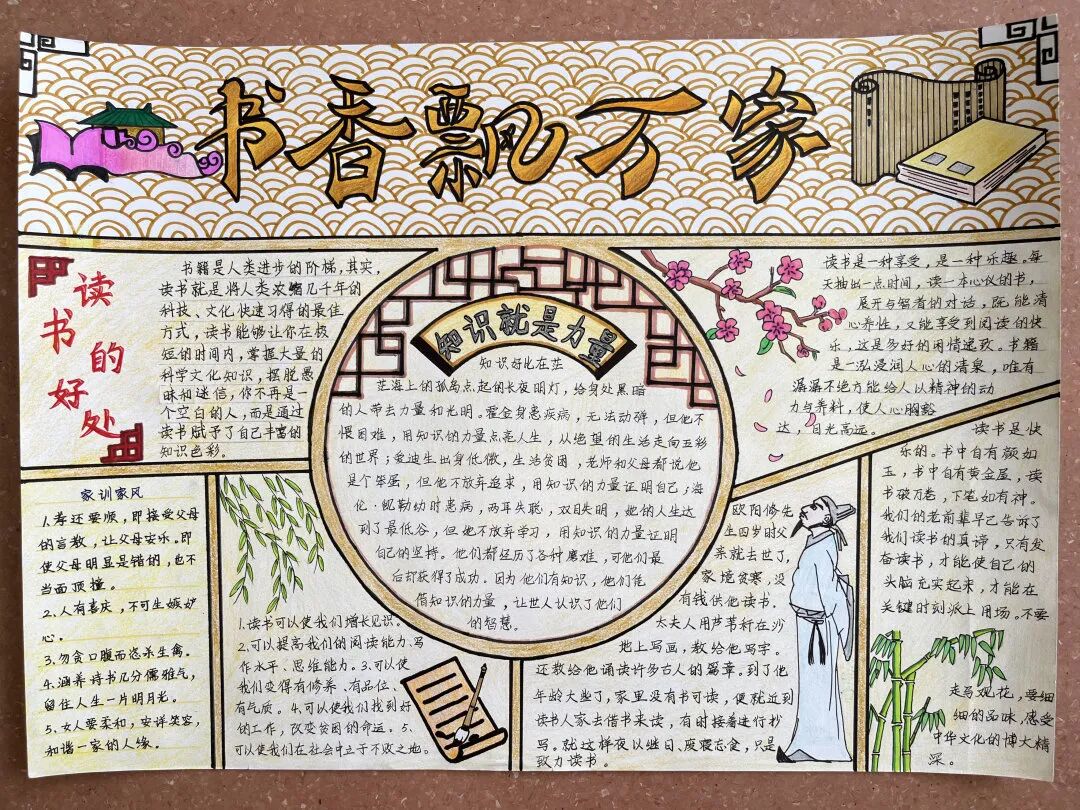 书香飘万家
读书的好处
书籍是人类进步的阶梯,其实,
读书就是将人类浓缩几千年的
科技、文化快速习得的最佳
方式,读书能够让你在极
短的时间内,掌握大量的
科学文化知识,摆脱愚
昧和迷信,你不再是一
个空白的人,而是通过
读书赋予了自己丰富的
知识色彩。
知识就是力量
知识好比在茫
茫海上的孤岛点起的长夜明灯,给身处黑暗
的人带去力量和光明。霍金身患疾病,无法动弹,但他不
惧困难,用知识的力量点亮人生,从绝望的生活走向五彩
的世界;爱迪生出身低微,生活贫困,老师和父母都说他
是个笨蛋,但他不放弃追求,用知识的力量证明自己;海
伦·凯勒幼时患病,两耳失聪,双目失明,她的人生达
到了最低谷,但她不放弃学习,用知识的力量证明
自己的坚持。他们都经历了各种磨难,可他们最
后却获得了成功。因为他们有知识,他们凭
借知识的力量,让世人认识了他们
的智慧。
读书是一种享受,是一种乐趣,每
天抽出一点时间,读一本心仪的书,
展开与智者的对话,既能清
心养性,又能享受到阅读的快
乐,这是多好的闲情逸致。书籍
是一泓浸润人心的清泉,唯有
潺潺不绝方能给人以精神的动
力与养料,使人心胸豁
达,目光高远。
家训家风
1.孝还要顺,即接受父母
的言教,让父母安乐。即
使父母明显是错的,也不
当面顶撞。
2.人有喜庆,不可生嫉妒
心。
3.勿贪口腹而恣杀生禽。
4.涵养诗书几分儒雅气,
留住人生一片明月光。
5.女人要柔和,安详笑容,
和谐一家的人缘。
1.读书可以使我们增长见识。
2.可以提高我们的阅读能力、写
作水平、思维能力。3.可以使
我们变得有修养、有品位、
有气质。4.可以使我们找到好
的工作,改变贫困的命运。5.
可以使我们在社会中立于不败之地。
欧阳修先
生四岁时父
亲就去世了,
家境贫寒,没
有钱供他读书。
太夫人用芦苇秆在沙
地上写画,教给他写字。
还教给他诵读许多古人的篇章。到了他
年龄大些了,家里没有书可读,便就近到
读书人家去借书来读,有时接着进行抄
写。就这样夜以继日、废寝忘食,只是
致力读书。
读书是快
乐的。书中自有颜如
玉,书中自有黄金屋,读
书破万卷,下笔如有神。
我们的老前辈早已告诉了
我们读书的真谛,只有发
奋读书,才能使自己的
头脑充实起来,才能在
关键时刻派上用场。不要
走马观花,要细
细的品味,感受
中华文化的博大精
深。